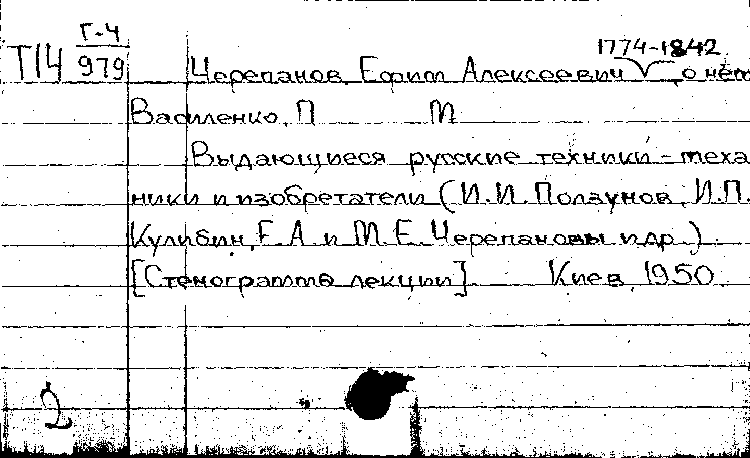 Г-4
Т14 979
1774-1842
Черепанов, Ефим Алексеевич, о нём
Василенко, П М
Выдающиеся русские техники-меха
ники и изобретатели (И.И. Ползунов, И.П.
Кулибин, Е.А. и М.Е. Черепановы и др.)
[Стенограмма лекции]. Киев, 1950.
2